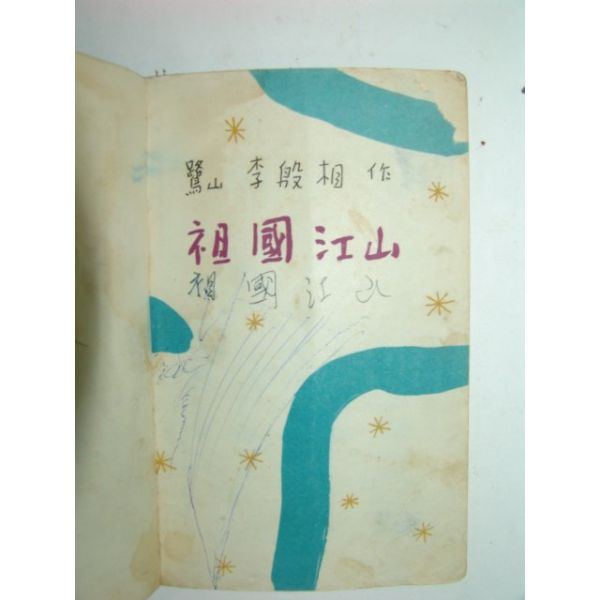 鷺山 李殷相 作
祖國江山
祖國江山